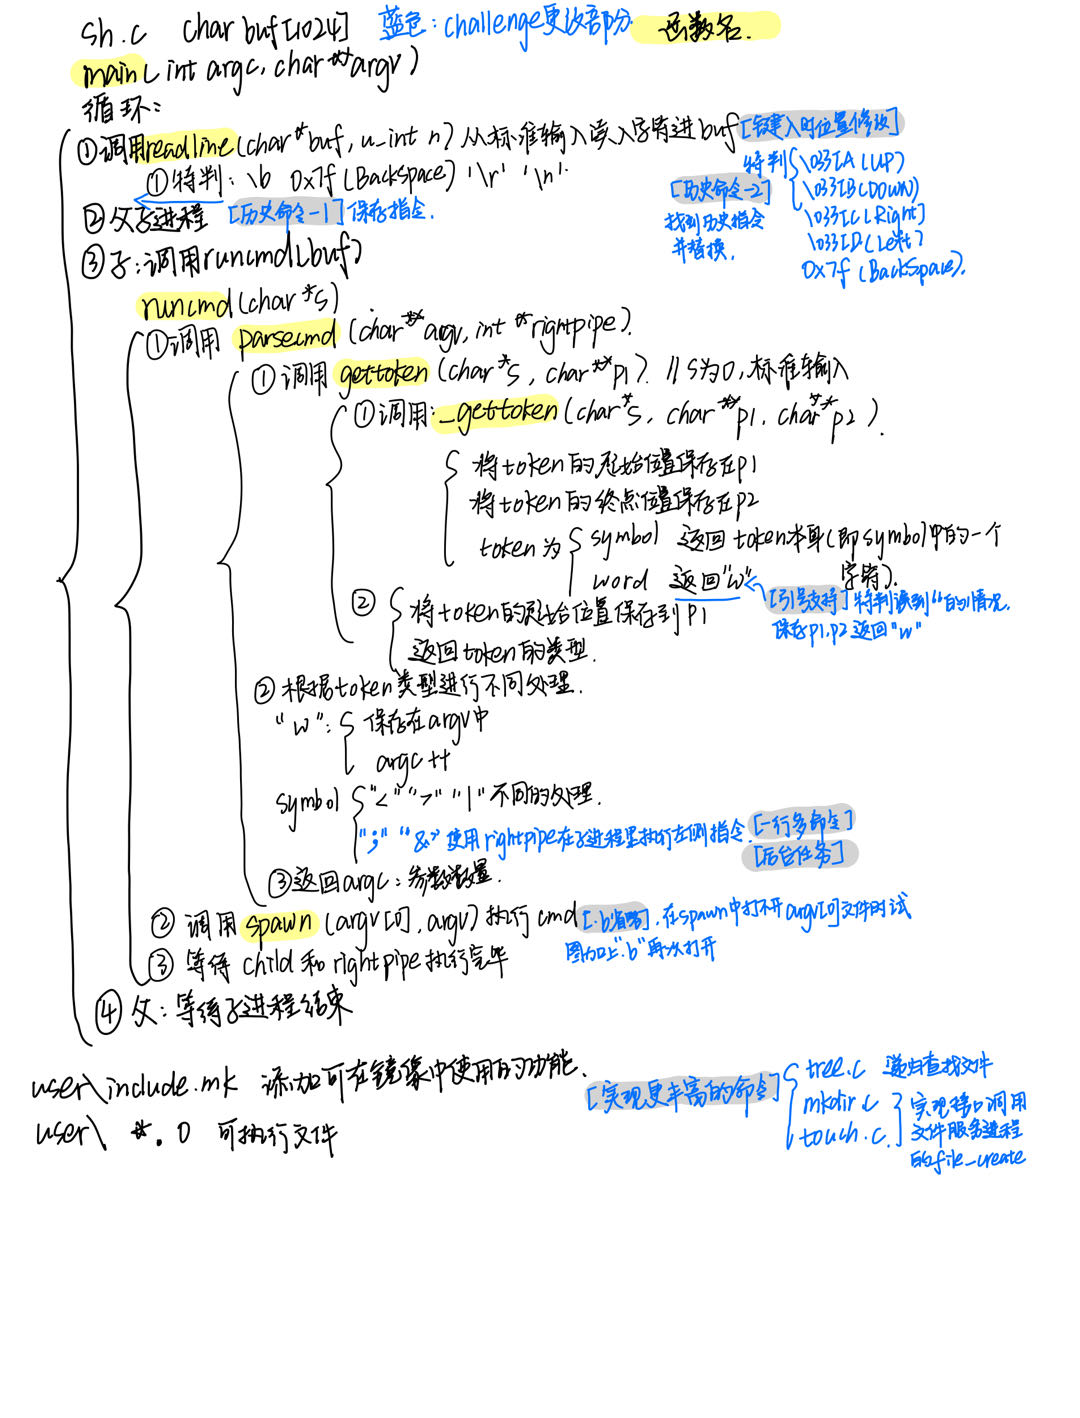 sh.c char buf[1024] 蓝色:challenge更改部分 函数名.
main(int argc, char **argv)
循环:
①调用readline(char *buf, u_int n)从标准输入读入字符进buf [键入时位置修改]
①特判: \b 0x7f (Backspace) '\r' '\n'.
特判 \033[A (UP)
\033[B (DOWN)
\033[C (Right)
\033[D (Left)
0x7f (BackSpace).
[历史命令-2]
找到历史指令
并替换.
②父子进程 [历史命令-1] 保存指令.
③子:调用runcmd(buf)
runcmd(char *s)
①调用 parsecmd (char **argv, int *rightpipe).
①调用 gettoken (char *s, char **p1). // s为0,标准输入
①调用:_gettoken (char *s, char **p1, char **p2).
将token的起始位置保存在p1
将token的终点位置保存在p2
token为 symbol 返回token本身(即symbol中的一个
字符).
word 返回"w"
[引号支持] 特判读到"的情况.
保存p1.p2返回"w"
② 将token的起始位置保存到p1
返回token的类型.
②根据token类型进行不同处理.
"w": 保存在argv中
argc++
symbol "<" ">" "|" 不同的处理.
";" "&" 使用rightpipe在子进程里执行左侧指令. [一行多命令]
[后台任务]
③返回argc:参数数量.
② 调用 spawn (argv[0], argv)执行cmd [.b省略].在spawn中打不开argv[0]文件时试
图加上".b"再次打开
③ 等待 child 和 rightpipe执行完毕
④ 父:等待子进程结束
user\include.mk 添加可在镜像中使用的功能.
user\ *.o 可执行文件
[实现更丰富的命令] tree.c 递归查找文件
mkdir.c
touch.c
实现接口调用
文件服务进程
的file_create